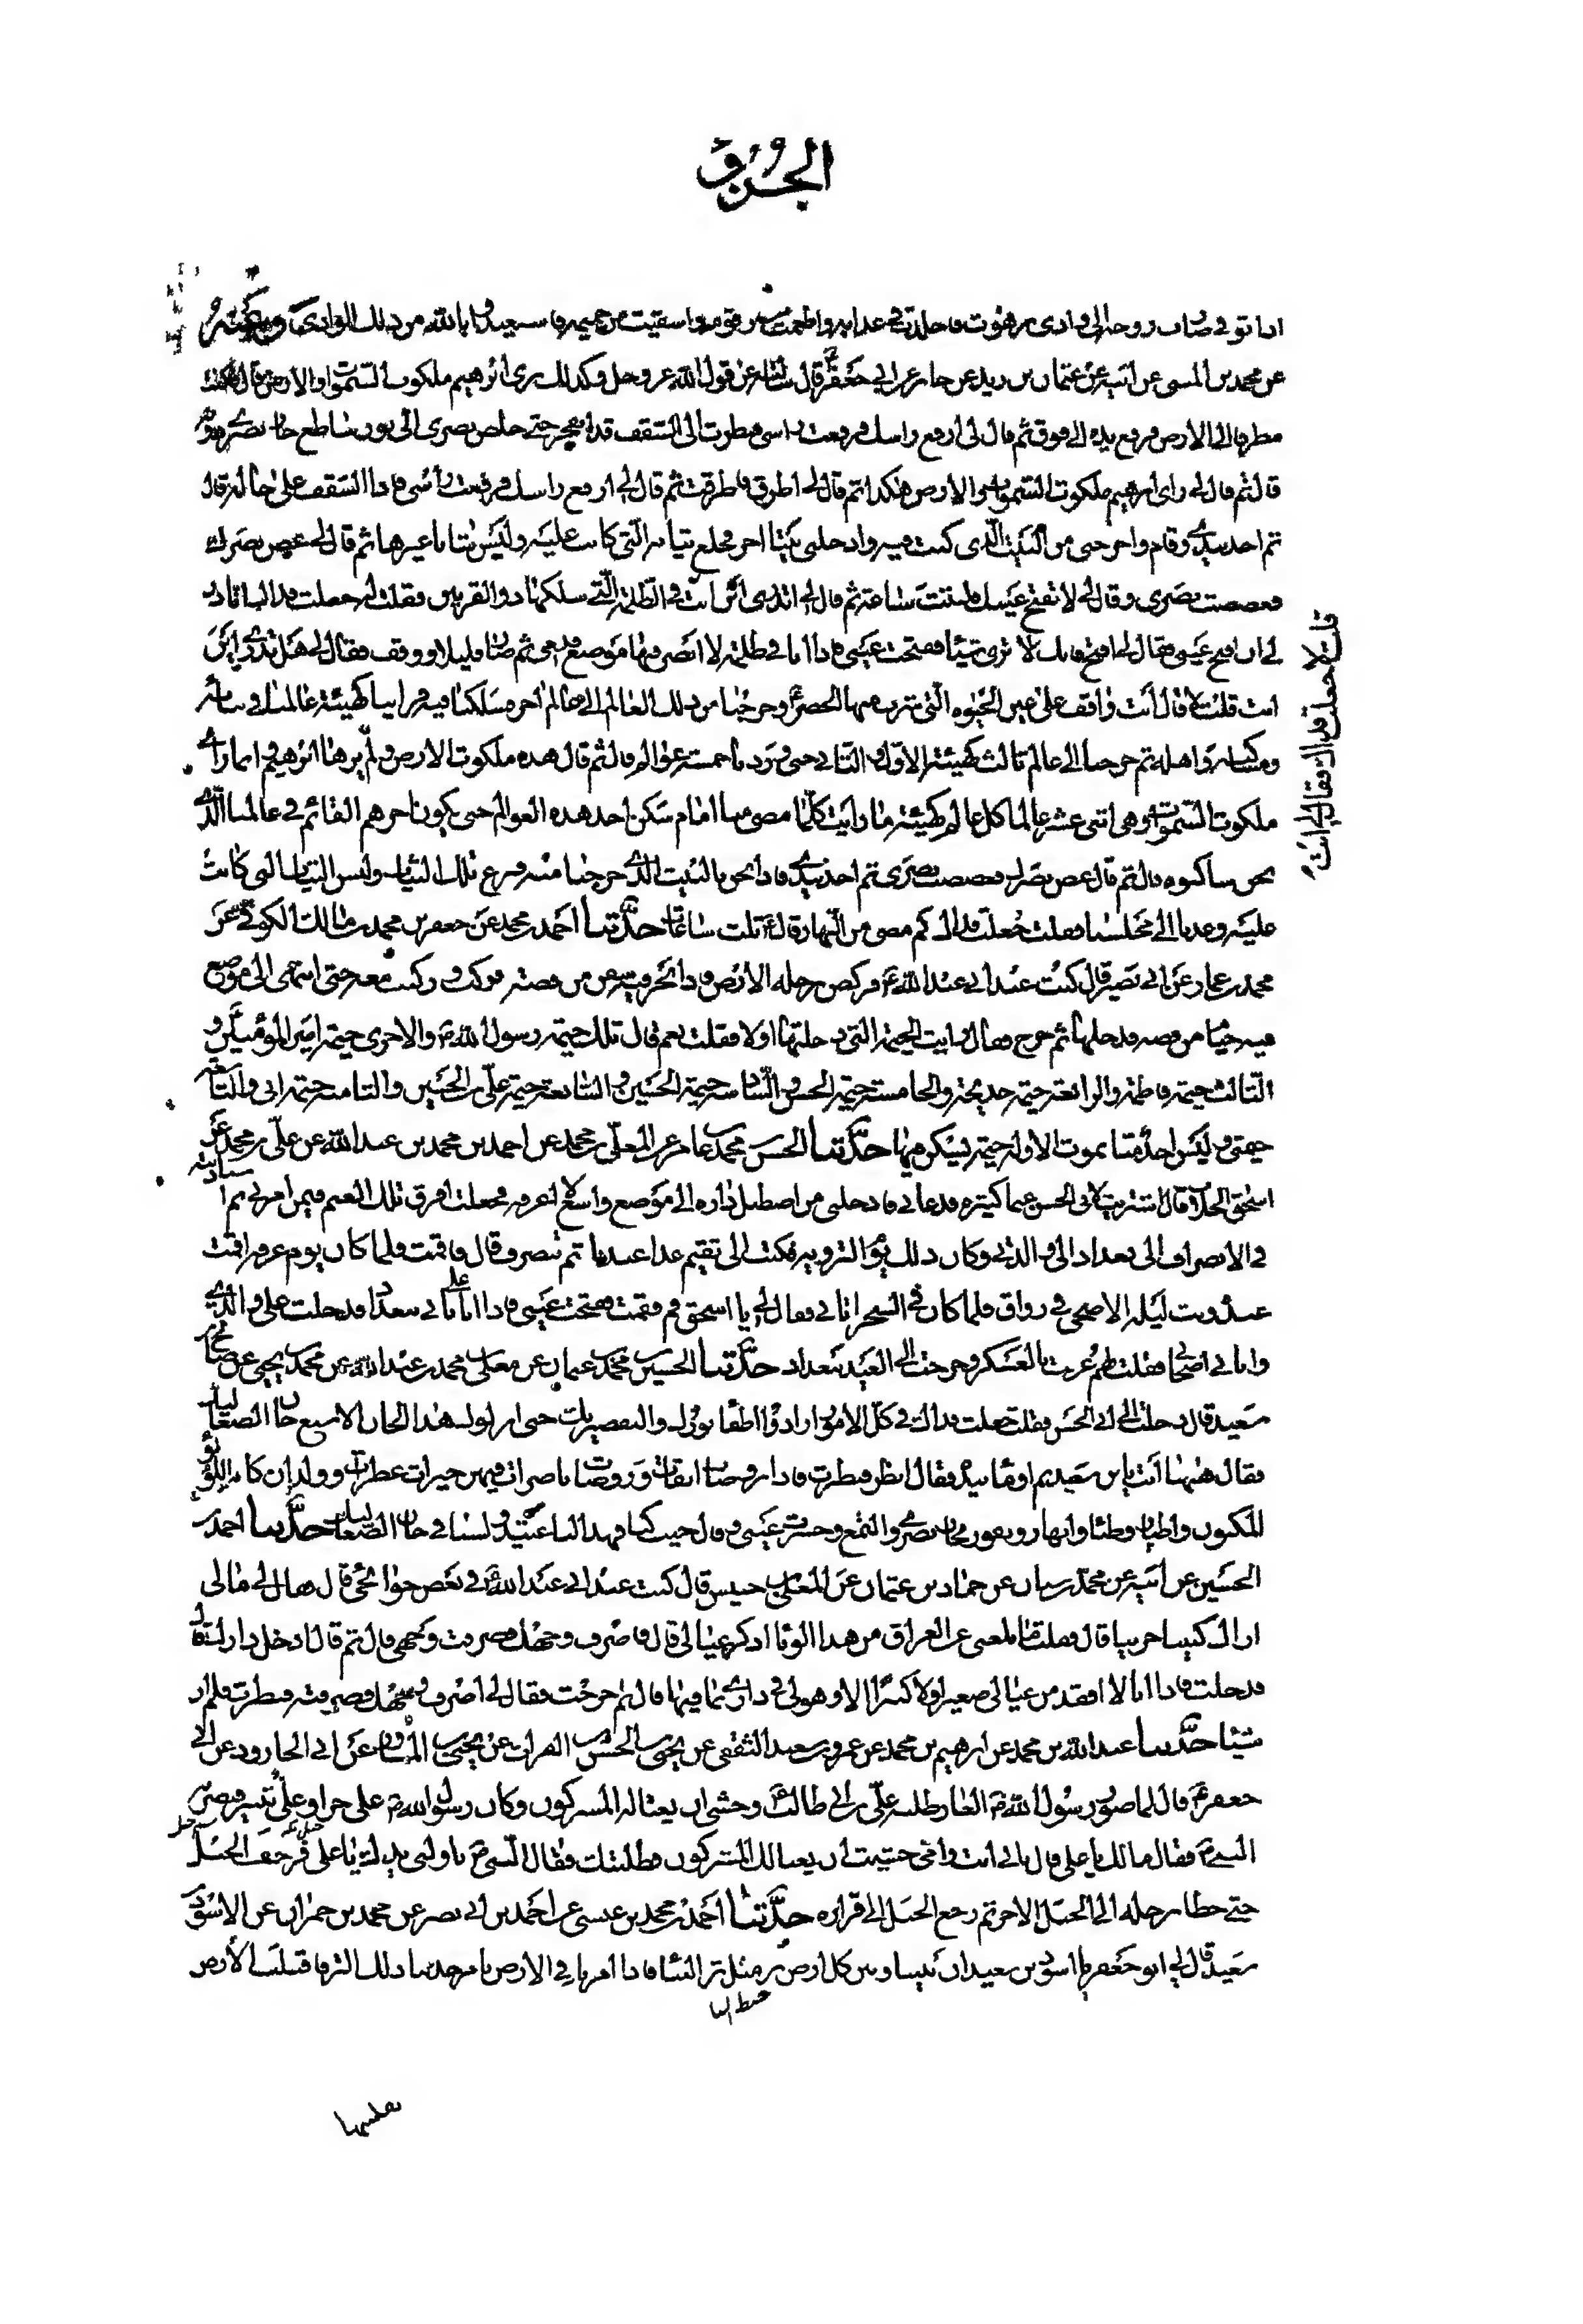 الجزؤ
اذا توفي صارت روحه الى وادي برهوت فاخلدت في عذابه واطعمت من زقومه واسقيت من حميمه فاستعيذوا بالله من ذلك الوادي
عن محمد بن المثنى عن ابيه عن عثمان بن زيد عن جابر عن ابي جعفر ع قال سالته عن قول الله عز وجل وكذلك نري ابرهيم ملكوت السموات والارض قال فكنت
مطرقا الى الارض فرفع يده الى فوق ثم قال لي ارفع راسك فرفعت راسي فنظرت الى السقف قد انفجر حتى خلص بصري الى نور ساطع حار بصري دونه
قال ثم قال لي راى ابرهيم ملكوت السموات والارض هكذا ثم قال لي اطرق فاطرقت ثم قال لي ارفع راسك فرفعت راسي فاذا السقف على حاله قال
ثم اخذ بيدي وقام واخرجني من البيت الذي كنت فيه وادخلني بيتا اخر فخلع ثيابه التي كانت عليه ولبس ثيابا غيرها ثم قال لي غض بصرك
فغضضت بصري وقال لي لا تفتح عينيك فلبثت ساعة ثم قال لي اتدري اين انت في الظلمة التي سلكها ذو القرنين فقلت له جعلت فداك اتاذن
لي ان افتح عيني فقال لي افتح فانك لا ترى شيئا ففتحت عيني فاذا انا في ظلمة لا ابصر فيها موضع قدمي ثم صار قليلا ووقف فقال لي هل تدري اين
انت قلت لا قال انت واقف على عين الحيوة التي شرب منها الخضر ع وخرجنا من ذلك العالم الى عالم اخر فسلكنا فيه فراينا كهيئة عالمنا في بنائه
ومساكنه واهله ثم خرجنا الى عالم ثالث كهيئة الاول والثاني حتى وردنا خمسة عوالم قال ثم قال هذه ملكوت الارض ولم يرها ابرهيم وانما راى
ملكوت السموات وهي اثنى عشر عالما كل عالم كهيئة ما رايت كلما مضى منا امام سكن احد هذه العوالم حتى يكون اخرهم القائم في عالمنا الذي
نحن ساكنوه قال ثم قال غض بصرك فغضضت بصري ثم اخذ بيدي فاذا نحن بالبيت الذي خرجنا منه فنزع تلك الثياب ولبس الثياب التي كانت
عليه وعدنا الى مجلسنا فقلت جعلت فداك كم مضى من النهار قال ع ثلث ساعات حدثنا احمد بن محمد عن جعفر بن محمد بن مالك الكوفي عن
محمد بن عمار عن ابي بصير قال كنت عند ابي عبد الله ع فركض برجله الارض فاذا بحر فيه سفن من فضة فركب وركبت معه حتى انتهى الى موضع
فيه خيام من فضة فدخلها ثم خرج فقال رايت الخيمة التي دخلتها اولا فقلت نعم قال تلك خيمة رسول الله ص والاخرى خيمة امير المؤمنين و
الثالثة خيمة فاطمة والرابعة خيمة خديجة والخامسة خيمة الحسن والسادسة خيمة الحسين والسابعة خيمة علي بن الحسين والثامنة خيمة ابي والتاسعة
خيمتي وليس احد منا يموت الا وله خيمة يسكن فيها حدثنا الحسن بن محمد بن عامر عن المعلى بن محمد عن احمد بن محمد بن عبد الله عن علي بن محمد عن
اسحق الجلاب قال اشتريت لابي الحسن غنما كثيرة فدعاني فادخلني من اصطبل داره الى موضع واسع لا اعرفه فجعلت افرق تلك الغنم فيمن امرني به
في الانصراف الى بغداد الى والدتي وكان ذلك يوم التروية فكتب الي تقيم غدا عندنا ثم تنصرف قال فاقمت فلما كان يوم عرفة اقمت
عنده وبت ليلة الاضحى في رواق فلما كان في السحر اتاني فقال لي يا اسحق قم فقمت ففتحت عيني فاذا انا على بابي ببغداد فدخلت على والدتي
واتاني اصحابي فقلت لهم عرفت بالعسكر وخرجت الى العيد ببغداد حدثنا الحسين بن محمد بن عثمان عن معلى بن محمد بن عبد الله عن محمد بن يحيى عن صالح بن
سعيد قال دخلت الى ابي الحسن فقلت جعلت فداك في كل الامور ارادوا اطفاء نورك والتقصير بك حتى انزلوك هذا الخان الاشنع خان الصعاليك
فقال ههنا انت يا بن سعيد ثم اومأ بيده فقال انظر فنظرت فاذا بروضات انقات وروضات ناضرات فيهن خيرات عطرات وولدان كانهن اللؤلؤ
المكنون واطيار وظباء وانهار تفور فحار بصري والتمع وحسرت عيني وقال حيث كنا فهذا لنا عتيد ولسنا في خان الصعاليك حدثنا احمد بن
الحسين عن ابيه عن محمد بن سنان عن حماد بن عثمان عن المعلى بن خنيس قال كنت عند ابي عبد الله ع في بعض حوائجي قال فقال لي مالي
اراك كئيبا حزينا قال فقلت ما بلغني عن العراق من هذا الوباء اذكر عيالي قال فاصرف وجهك فصرفت وجهي قال ثم قال ادخل دارك قال
فدخلت فاذا انا لا افقد من عيالي صغيرا ولا كبيرا الا وهو لي في داري بما فيها قال ثم خرجت فقال لي اصرف وجهك فصرفته فنظرت فلم ار
شيئا حدثنا عبد الله بن محمد عن ابرهيم بن محمد عن عمرو بن سعيد الثقفي عن يحيى بن الحسن بن الفرات عن يحيى بن المساور عن ابي الجارود عن ابي
جعفر ع قال لما صعد رسول الله ص الغار طلبه علي بن ابي طالب ع وخشى ان يغتاله المشركون وكان رسول الله ص على حراء وعلي بثبير فبصر به
النبي ص فقال مالك يا علي قال بابي انت وامي خشيت ان يغتالك المشركون فطلبتك فقال النبي ص ناولني يدك يا علي فرجف الجبل
حتى خطا برجله الى الجبل الاخر ثم رجع الجبل الى قراره حدثنا احمد بن محمد بن عيسى عن احمد بن ابي نصر عن محمد بن حمران عن الاسود بن
سعيد قال لي ابو جعفر يا اسود بن سعيد ان بيننا وبين كل ارض تر مثل تر البناء فاذا امرنا في الارض بامر جذبنا ذلك التر فاقبلت الارض
خيط البنا
بقليبها
قلت لا جعلت فداك فقال لي انت